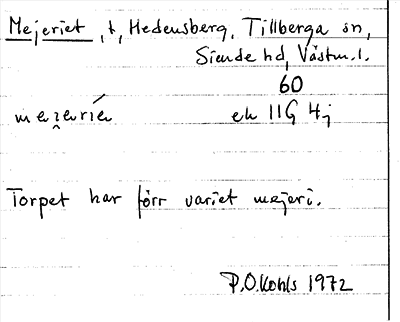 Mejeriet, t, Hedensberg, Tillberga sn,
Siende hd, Västm. l.
60
ek 11G 4j
Torpet har förr variet mejeri.
P.O. Kohls 1972